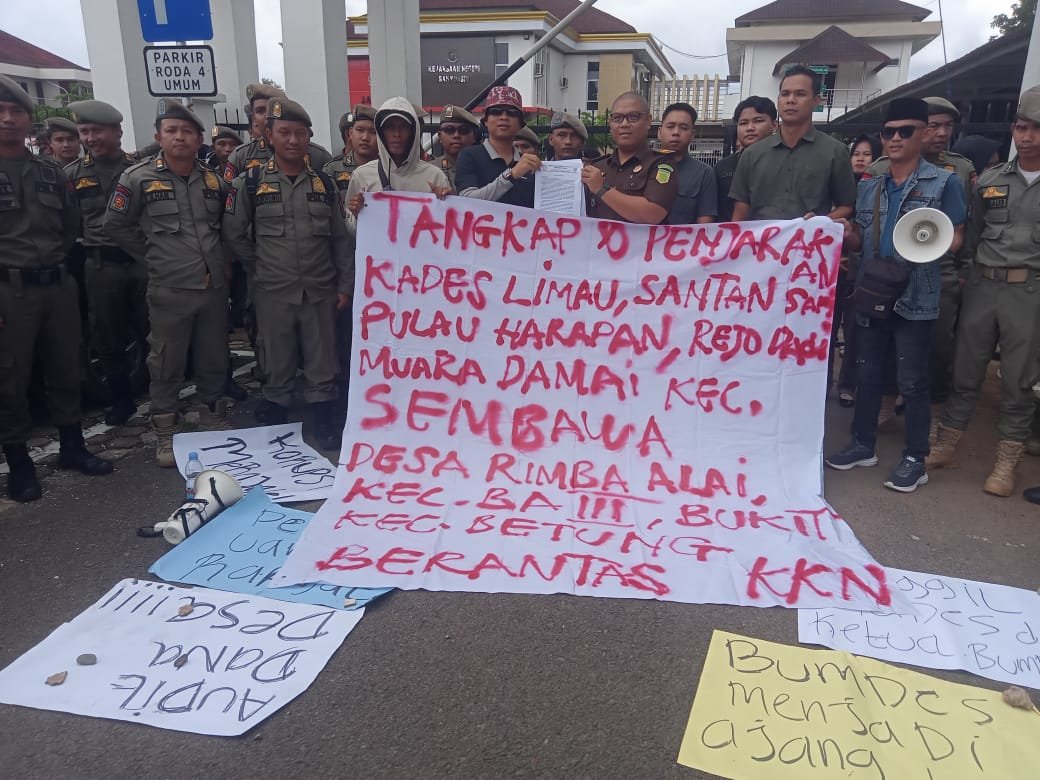 PARKIR
RODA 4
UMUM
KEJAKSAAN NEGERI
BANYUASIN
TANGKAP & PENJARAKAN
KADES LIMAU, SANTAN SARI
PULAU HARAPAN, REJO DADI
MUARA DAMAI KEC.
SEMBAWA
DESA RIMBA ALAI,
KEC. BA III, BUKIT
KEC. BETUNG
BERANTAS KKN
AUDIT
DANA
DESA !!!!
Ketua Bum
BUMDES
menjadi
ajang Di